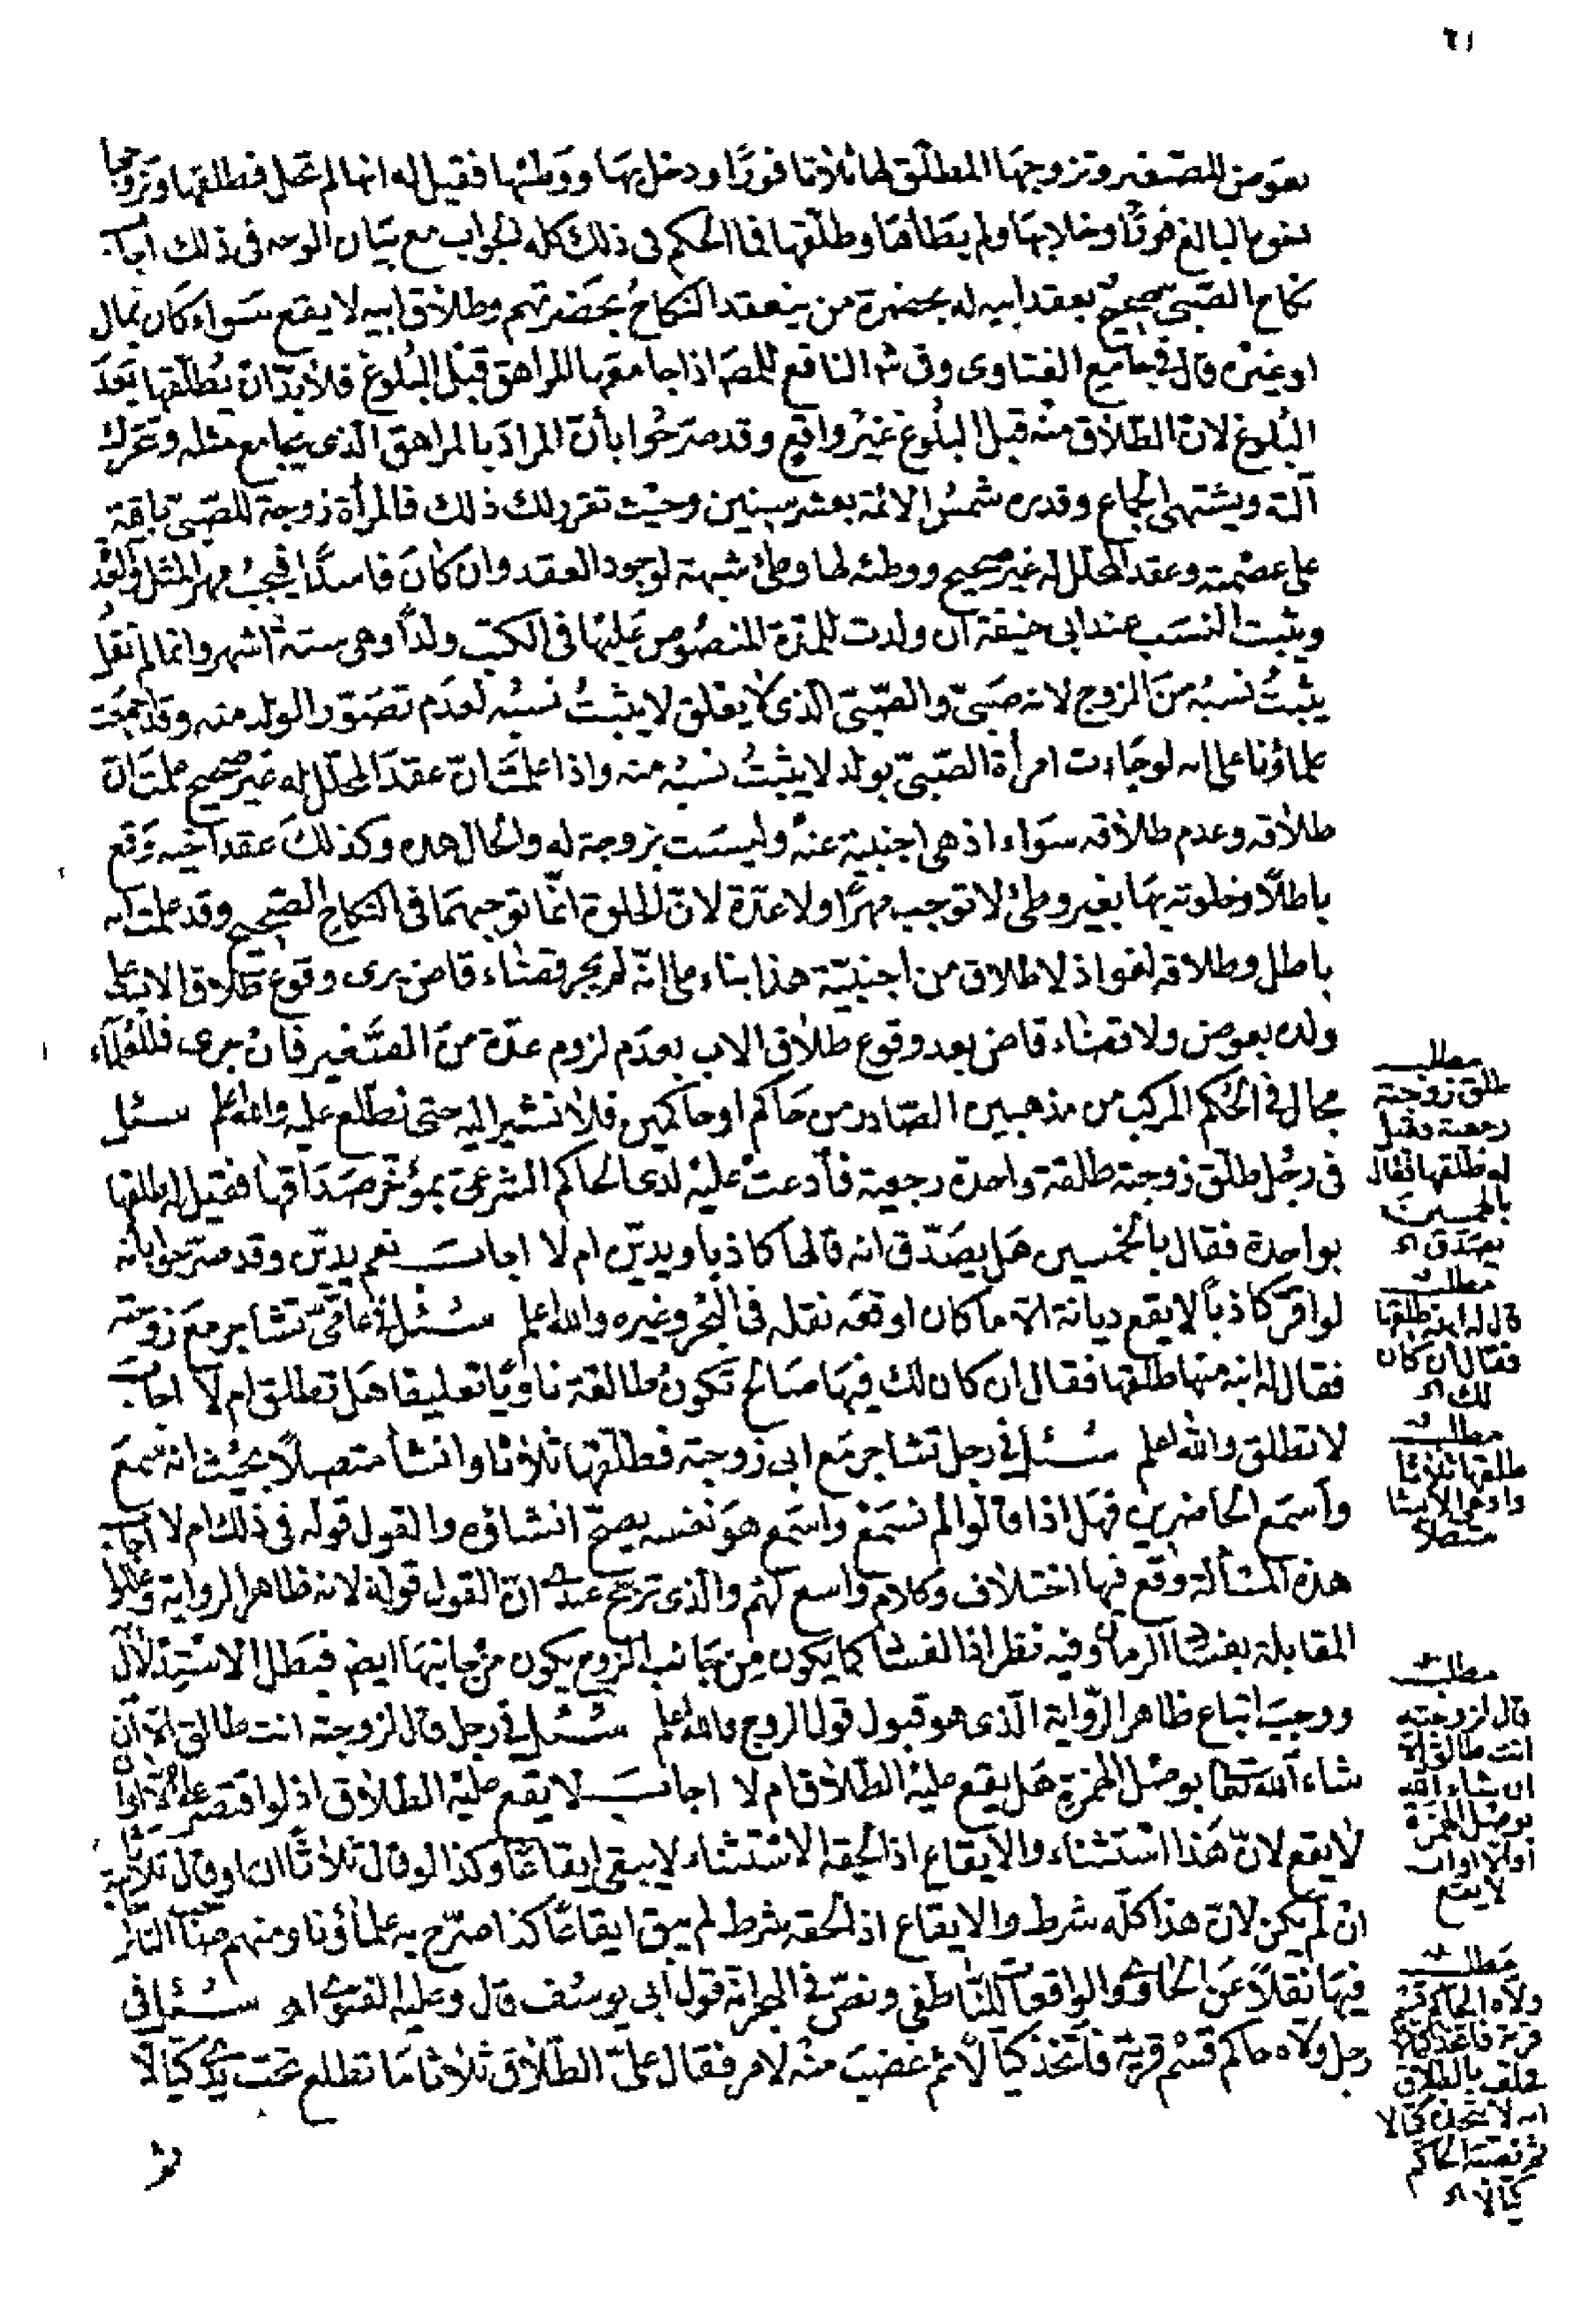 ٦١
بعوض للصغير وتزوجها المطلق لها ثلاثا فورًا ودخل بها ووطئها فقيل له انها لم تحل فطلقها وتزوجها
البالغ فورًا وخلا بها ولم يطأها وطلقها فما الحكم في ذلك كله الجواب مع بيان الوجه في ذلك اجاب
نكاح الصبي صحيح بعقد ابيه له بحضرة من ينعقد النكاح بحضرتهم وطلاق ابيه لا يقع سواء كان بمال
او غيره قال في جامع الفتاوى وفي النافع اذا جامعها المراهق قبل البلوغ فلا بد ان يطلقها بعد
البلوغ لان الطلاق منه قبل البلوغ غير واقع وقد صرحوا بأن المراد بالمراهق الذي يجامع مثله وتتحرك
آلته ويشتهي الجماع وقدره شمس الائمة بعشر سنين وحيث تقرر لك ذلك فالمرأة زوجة للصبي باقية
على عصمته وعقد المحلل له غير صحيح ووطئه لها وطئ شبهة لوجود العقد وان كان فاسدًا فيجب مهر المثل والعدة
ويثبت النسب عند ابي حنيفة ان ولدت للمدة المنصوص عليها في الكتب ولدًا وهي ستة اشهر وانما لم نقل
يثبت نسبه من الزوج لانه صبي والصبي الذي لا يعلق لا يثبت نسبه لعدم تصور الولد منه وقد اجمعت
علماؤنا على انه لو جاءت امرأة الصبي بولد لا يثبت نسبه منه واذا علمت ان عقد المحلل له غير صحيح علمت ان
طلاقه وعدم طلاقه سواء اذ هي اجنبية عنه وليست بزوجة له والحال هذه وكذلك عقد اخيه وقع
باطلًا وخلوته بها بغير وطئ لا توجب مهرًا ولا عدة لان الخلوة انما توجبهما في النكاح الصحيح وقد علمت انه
باطل وطلاقه لغو اذ لا طلاق من اجنبية هذا بناء على انه لم يجر قضاء قاض يرى وقوع طلاق الاب على
ولده بعوض ولا قضاء قاض بعد وقوع طلاق الاب بعدم لزوم عدة من الصغير فان جرى فللعلماء
مجال في الحكم المركب من مذهبين الصادر من حاكم او حاكمين فلا نشير اليه حتى نطلع عليه والله اعلم سئل
في رجل طلق زوجته طلقة واحدة رجعية فادعت عليه لدى الحاكم الشرعي بمؤخر صداقها فقيل له طلقها
بواحدة فقال بالخمسين هل يصدق انه قالها كاذبا ويدين ام لا اجاب نعم يدين وقد صرحوا بانه
لو اقر كاذبًا لا يقع ديانة الا ما كان اوقعه نقله في البحر وغيره والله اعلم سئل في عامي تشاجر مع زوجته
فقال له ابنه منها طلقها فقال ان كان لك فيها صالح تكون طالقة ناويًا تعليقا هل تطلق ام لا اجاب
لا تطلق والله اعلم سئل في رجل تشاجر مع ابي زوجته فطلقها ثلاثا وانشأ متصلًا بحيث انه سمع
واسمع الحاضرين فهل اذا قالوا لم نسمع واسمع هو نفسه يصح انشاؤه والقول قوله في ذلك ام لا اجاب
هذه المسألة وقع فيها اختلاف وكلام واسع لهم والذي ترجح عندي ان القول قوله لانه ظاهر الرواية وعللوا
المقابلة بفساد الزمان وفيه نظر اذ الفساد كما يكون من جانب الزوج يكون من جانبها ايضا فبطل الاستدلال
ووجب اتباع ظاهر الرواية الذي هو قبول قول الزوج والله اعلم سئل في رجل قال لزوجته انت طالق الا ان
شاء الله تعالى بوصل الهمزة هل يقع عليه الطلاق ام لا اجاب لا يقع عليه الطلاق اذ لو اقتصر على الا او ان
لا يقع لان هذا استثناء والايقاع اذا لحقه الاستثناء لا يبقى ايقاعًا وكذا لو قال ثلاثًا الا او قال ثلاثا
ان لم يكن لان هذا كله شرط والايقاع اذا لحقه شرط لم يبق ايقاعًا كذا صرح به علماؤنا ومنهم
فيها نقلًا عن الحاوي والواقعات للناطفي ونص في الجوهرة قول ابي يوسف قال وعليه الفتوى اهـ سئل في
رجل ولاه حاكم قسم قرية فاتخذ كيالًا ثم غضب منه لامر فقال علي الطلاق ثلاثا ما تطلع تحت يدي كيالًا
مطلب
طلق زوجته
رجعية وقيل
له طلقها فقال
بالخمسين
يصدق اهـ
مطلب
قال له ابنه طلقها
فقال ان كان
لك اهـ
مطلب
طلقها ثلاثا
وادعى الانشا
متصلًا
مطلب
قال لزوجته
انت طالق الا
ان شاء الله
بوصل الهمزة
او الا او ان
لا يقع
مطلب
ولاه الحاكم قسم
قرية فاتخذ كيالا
فحلف بالطلاق
انه لا يتخذه كيالا
ثم نصبه الحاكم
كيالا اهـ
ثم